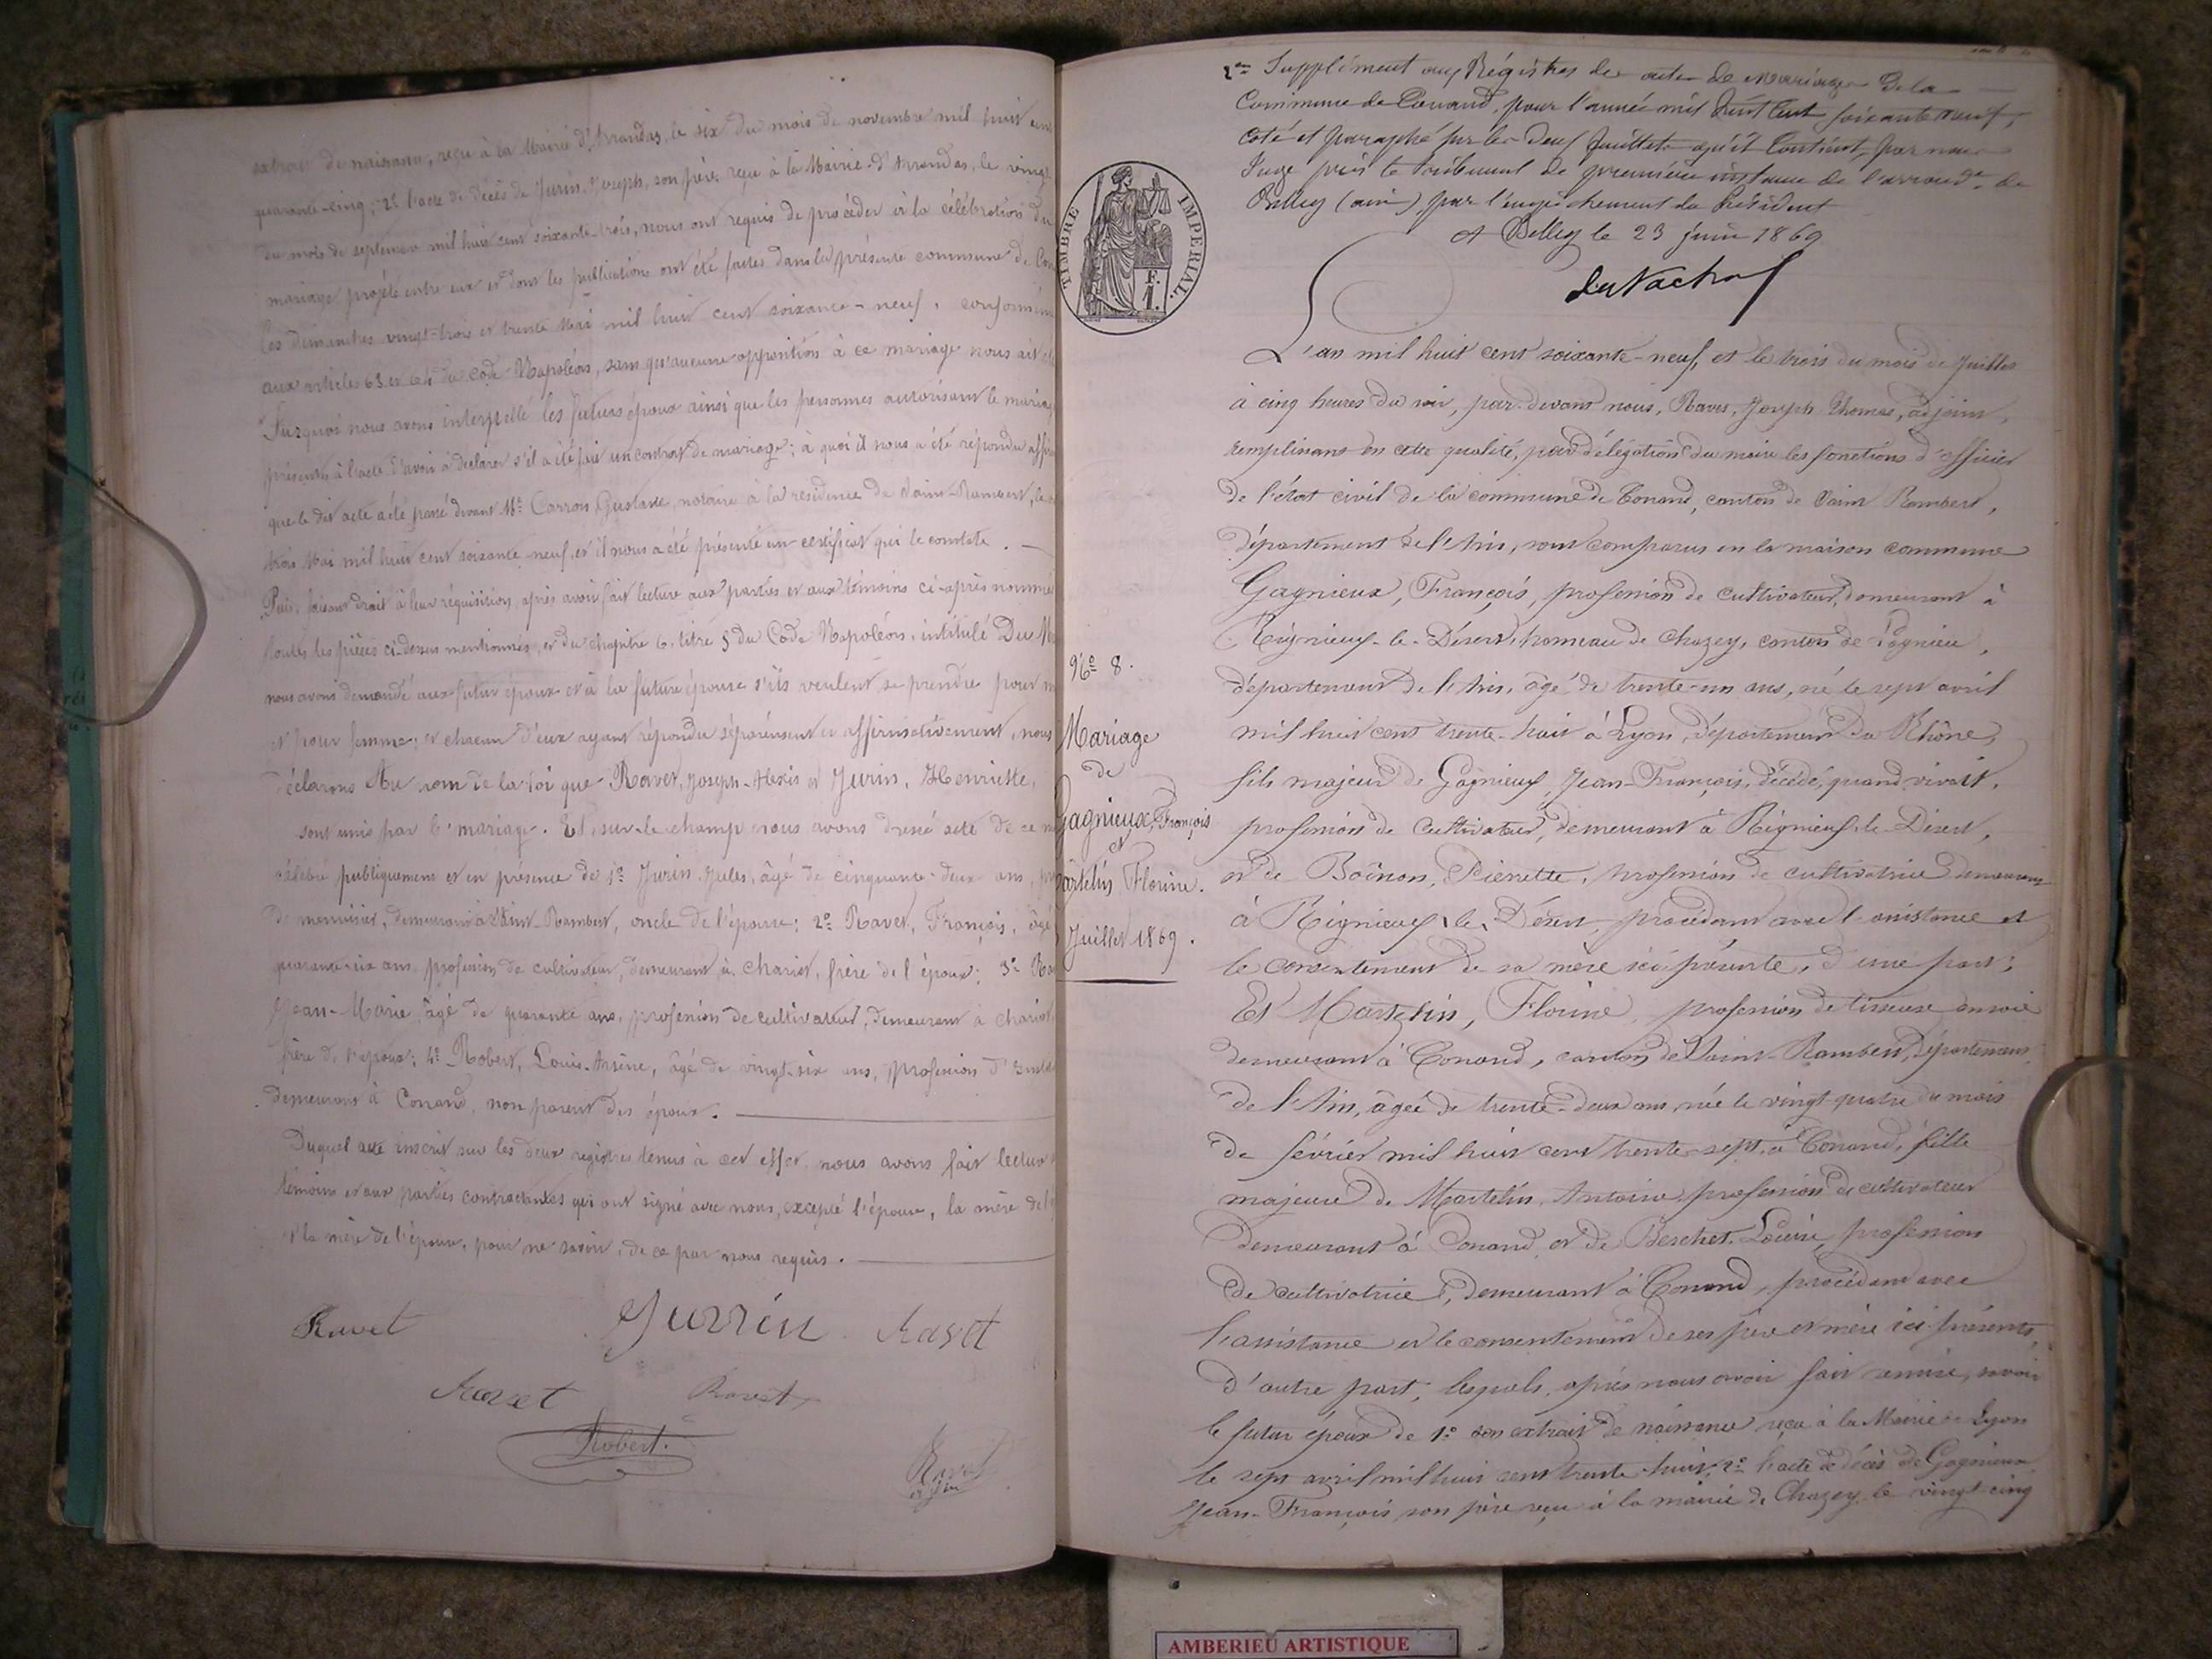 extrait de naissance, reçu à la Mairie d'Arandas, le six du mois de novembre mil huit cent
quarante-cinq; 2° l'acte de décès de Jurin, Joseph, son père, reçu à la Mairie d'Arandas, le vingt
du mois de septembre mil huit cent soixante-trois, nous ont requis de procéder à la célébration du
mariage projeté entre eux et dont les publications ont été faites dans la présente commune de Con
les dimanches vingt-trois et trente Mai mil huit cent soixante-neuf, conformém
aux articles 63 et 64 du Code Napoléon, sans qu'aucune opposition à ce mariage nous ait été
Surquoi nous avons interpellé les futurs époux ainsi que les personnes autorisant le mariag
présentes à l'acte d'avoir à déclarer s'il a été fait un contrat de mariage; à quoi il nous a été répondu affir
que le dit acte a été passé devant Me Carron Gustave, notaire à la résidence de Saint-Rambert, le
trois Mai mil huit cent soixante-neuf, et il nous a été présenté un certificat qui le constate.
Puis, faisant droit à leur réquisition, après avoir fait lecture aux parties et aux témoins ci-après nommés
toutes les pièces ci-dessus mentionnées, et du chapitre 6, titre 5 du Code Napoléon, intitulé Du M
nous avons demandé aux futur époux et à la future épouse s'ils veulent se prendre pour m
et pour femme; et chacun d'eux ayant répondu séparément et affirmativement, nous
déclarons Au nom de la loi que Ravet, Joseph-Alexis et Jurin, Henriette,
sont unis par le mariage. Et, sur-le-champ nous avons dressé acte de ce m
célébré publiquement et en présence de 1° Jurin Jules, âgé de cinquante-deux ans, pr
de menuisier, demeurant à Saint-Rambert, oncle de l'épouse; 2° Ravet, François, âgé
quarante-six ans, profession de cultivateur, demeurant à Chariot, frère de l'époux; 3° Ra
Jean-Marie, âgé de quarante ans, profession de cultivateur, demeurant à Chariot
frère de l'époux; 4° Robert, Louis-Arsène, âgé de vingt-six ans, profession d'
demeurant à Conand, non parent des époux.
Duquel acte inscrit sur les deux registres tenus à cet effet, nous avons fait lecture
témoins et aux parties contractantes qui ont signé avec nous, excepté l'épouse, la mère de l'
et la mère de l'épouse, pour ne savoir, de ce par nous requis.
Ravet Jurrin Ravet
Ravet Ravet
Robert.
Ravet
adjoint
2me Supplément aux Régistres des actes de mariage de la
Commune de Conand, pour l'année mil huit cent soixante neuf,
Coté et paraphé sur les deux feuillets qu'il contient, par nous
Juge près le tribunal de première instance de l'arrondt de
Belley (ain), par l'empêchement du Président
A Belley le 23 juin 1869
TIMBRE IMPERIAL.
F.
1.
L'an mil huit cent soixante-neuf, et le trois du mois de Juillet
à cinq heures du soir, par-devant nous, Ravet, Joseph Thomas, adjoint,
remplissant en cette qualité, par délégation du maire les fonctions d'officier
de l'état civil de la commune de Conand, canton de Saint Rambert,
département de l'Ain, sont comparus en la maison commune
Gagnieux, François, profession de cultivateur, demeurant à
Rignieux-le-Désert, hameau de Chazey, canton de Lagnieu,
département de l'Ain, âgé de trente-un ans, né le sept avril
mil huit cent trente-huit à Lyon, département du Rhône,
fils majeur de Gagnieux, Jean-François, décédé, quand vivait,
profession de cultivateur, demeurant à Rignieux-le-Désert,
et de Boënon, Pierrette, profession de cultivatrice demeurant
à Rignieux-le-Désert, procédant avec l'assistance et
le consentement de sa mère ici présente, d'une part;
Et Martelin, Florine, profession de tisseuse en soie
demeurant à Conand, canton de Saint-Rambert, département
de l'Ain, âgée de trente-deux ans, née le vingt-quatre du mois
de février mil huit cent trente-sept, à Conand, fille
majeure de Martelin, Antoine, profession de cultivateur
demeurant à Conand et de Berchet, Louise, profession
de cultivatrice, demeurant à Conand, procédant avec
l'assistance et le consentement de ses père et mère ici présents,
d'autre part, lesquels, après nous avoir fait remise, savoir
le futur époux de 1° son extrait de naissance reçu à la Mairie de Lyon
le sept avril mil huit cent trente-huit; 2° l'acte de décès de Gagnieux
Jean-François, son père reçu à la mairie de Chazey le vingt cinq
No 8.
Mariage
de
Gagnieux, François
et
artelin Florine.
Juillet 1869.
AMBERIEU ARTISTIQUE